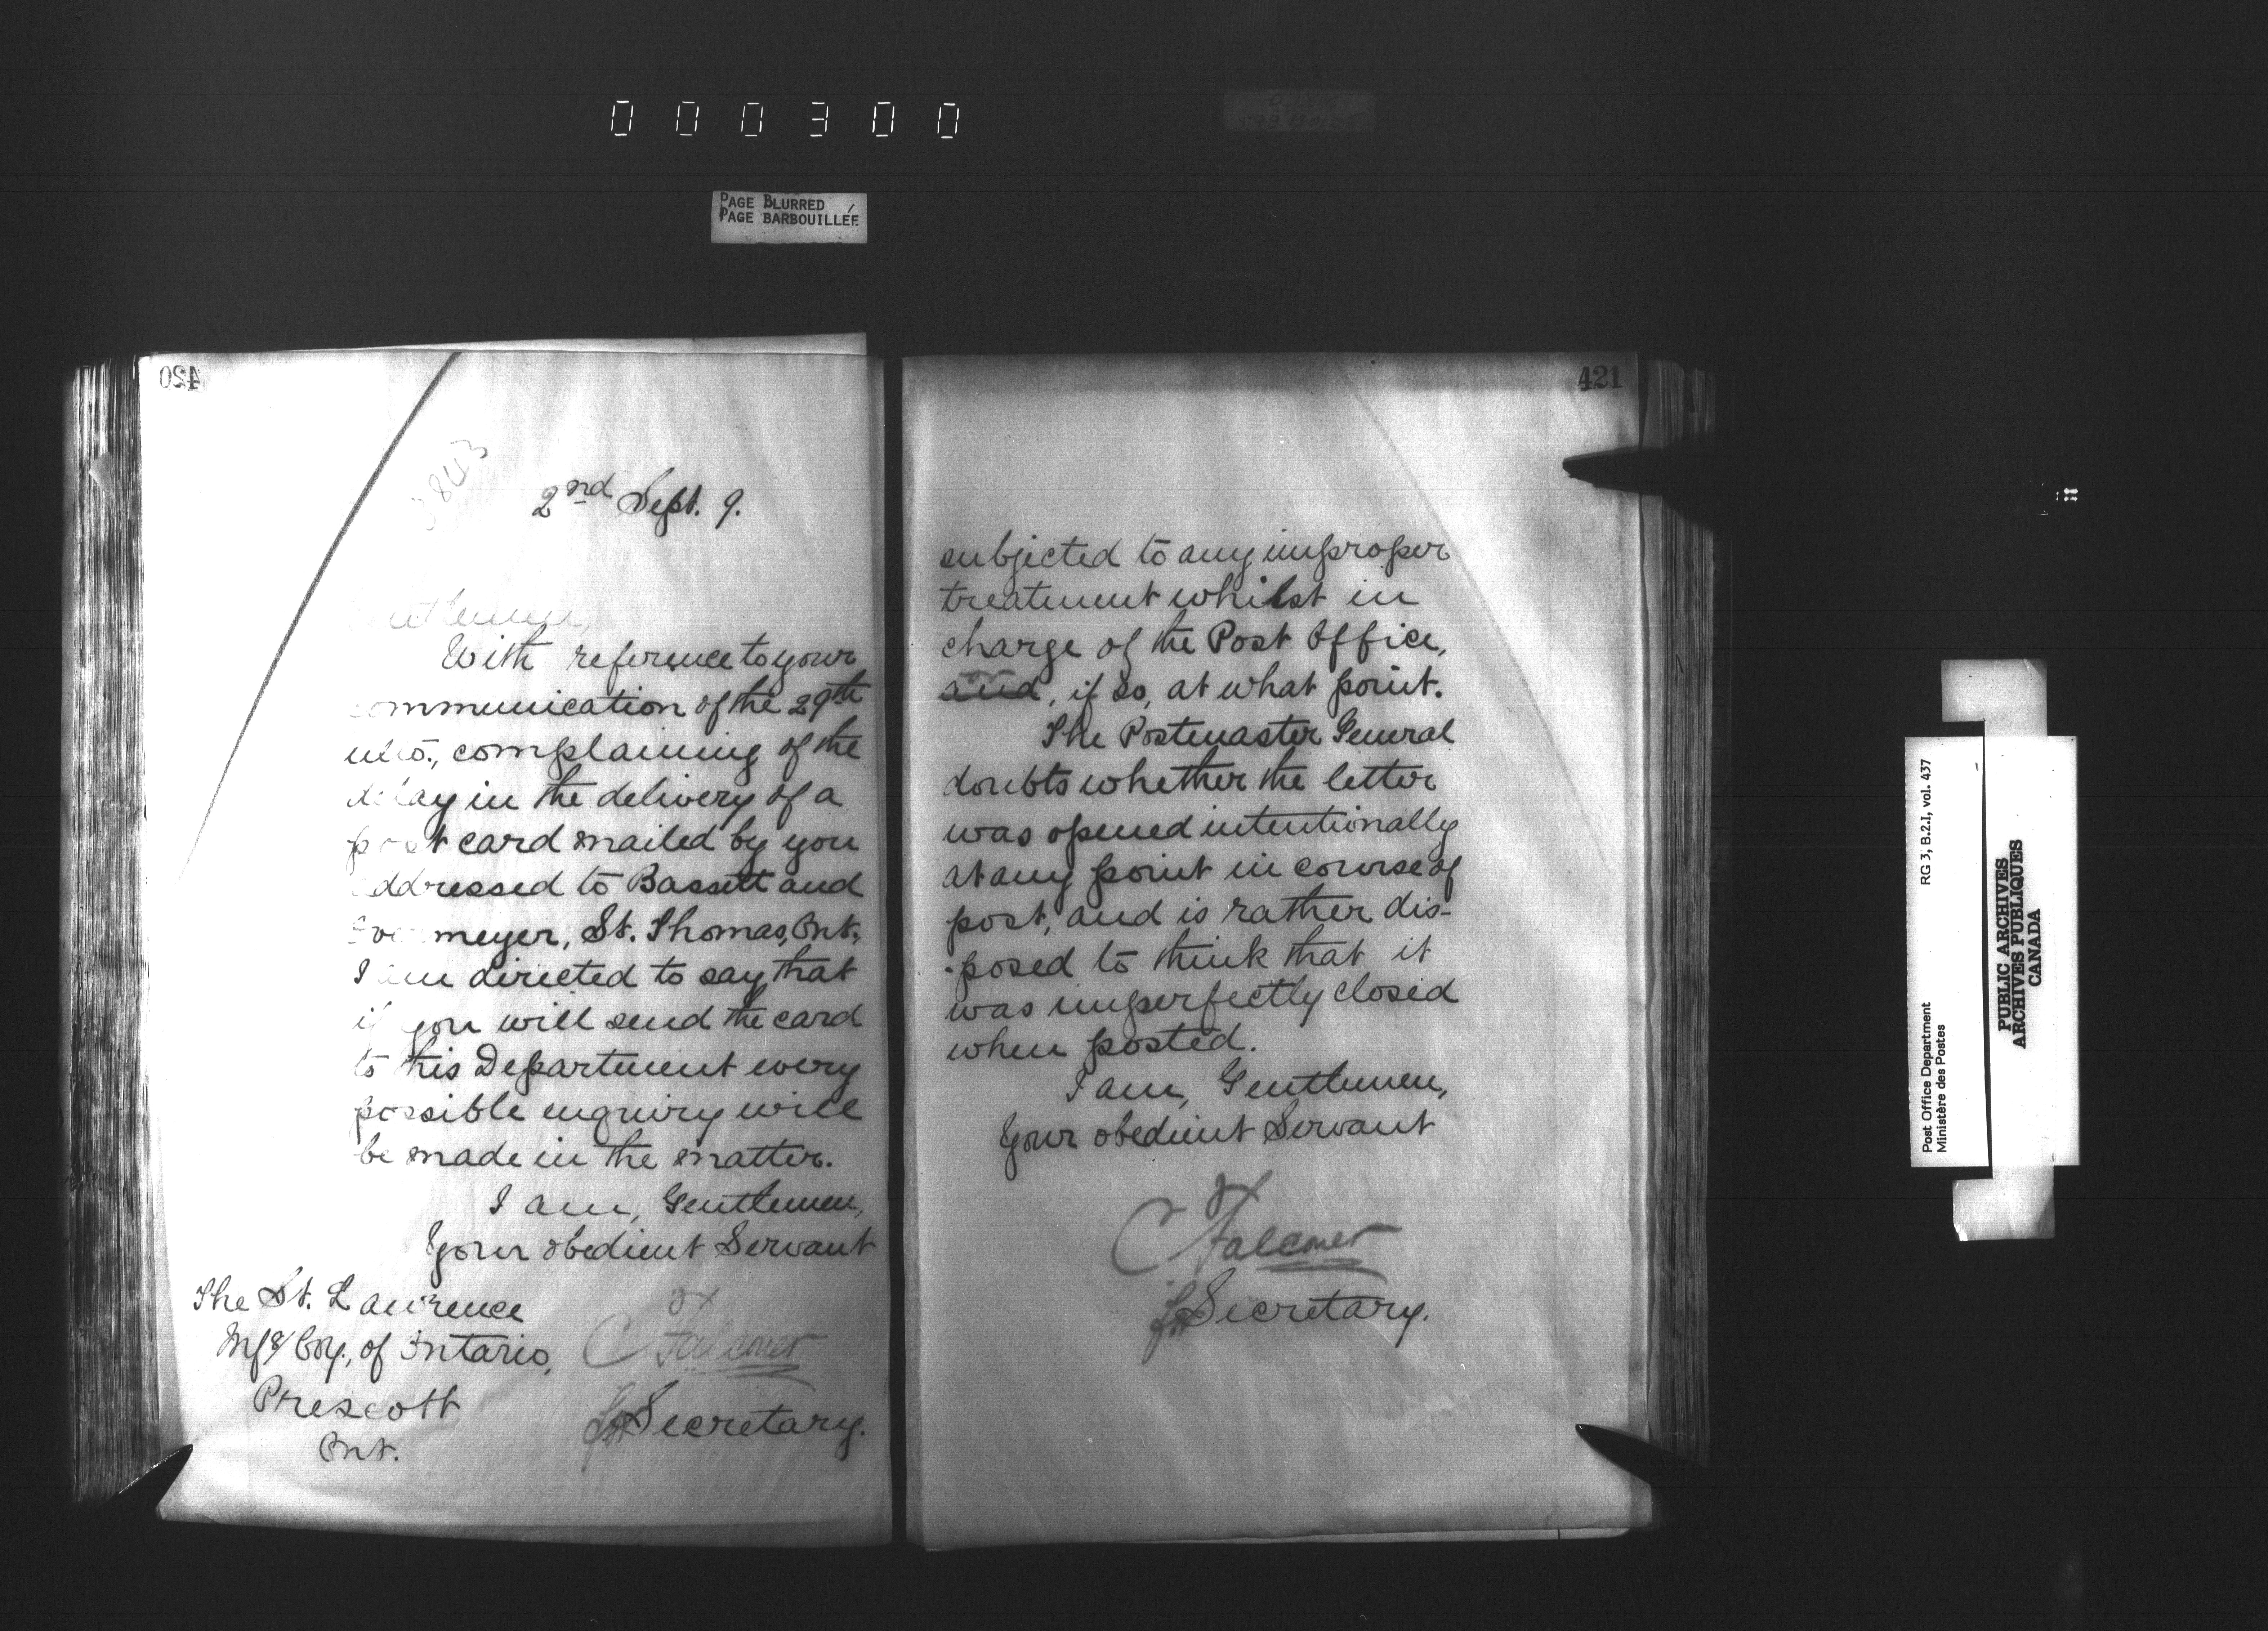 000300
PAGE BLURRED
PAGE BARBOUILLÉE
420
3843
2nd Sept. 9.
Gentlemen,
With reference to your
communication of the 29th
ulto., complaining of the
delay in the delivery of a
post card mailed by you
addressed to Bassett and
meyer, St. Thomas, Ont.,
I am directed to say that
if you will send the card
to this Department every
possible enquiry will
be made in the matter.
I am, Gentlemen,
Your obedient Servant
C Falconer
for Secretary.
The St. Lawrence
Mfg Coy., of Ontario,
Prescott
Ont.
421
subjected to any improper
treatment whilst in
charge of the Post Office,
and, if so, at what point.
The Postmaster General
doubts whether the letter
was opened intentionally
at any point in course of
post, and is rather dis-
-posed to think that it
was imperfectly closed
when posted.
I am, Gentlemen,
Your obedient Servant
C Falconer
for Secretary.
Post Office Department
Ministère des Postes
RG 3, B.2.I, vol. 437
PUBLIC ARCHIVES
ARCHIVES PUBLIQUES
CANADA